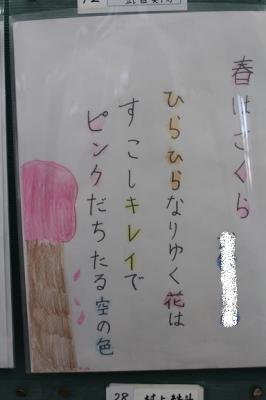 春はさくら
ひらひらなりゆく花は
すこしキレイで
ピンクだちたる空の色
28